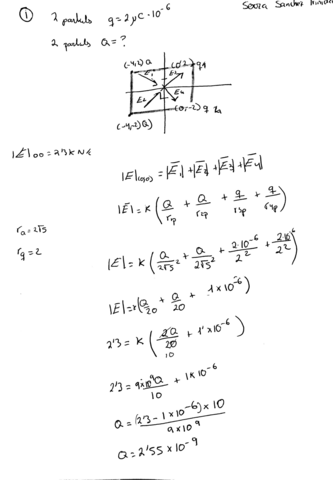 ① 2 partículs q = 2μC·10⁻⁶
2 partículs Q = ?
Souza Sanchez
(-4,2) Q (0,2) q
E₁
E₂
(-4,-2) Q) (0,-2) q
|E|₀₀ = 2'3 K N
|E|(0,0) = |E₁| + |E₂| + |E₃| + |E₄|
|E| = K (Q/r₁² + Q/r₂² + q/r₃² + q/r₄²)
r_Q = 2√5
r_q = 2
|E| = K (Q/2√5² + Q/2√5² + 2·10⁻⁶/2² + 2·10⁻⁶/2²)
|E| = K (Q/20 + Q/20 + 1×10⁻⁶)
2'3 = K (2Q/20 + 1×10⁻⁶)
10
2'3 = 9×10⁹Q/10 + 1×10⁻⁶
Q = (2'3 - 1×10⁻⁶)×10/9×10⁹
Q = 2'55×10⁻⁹